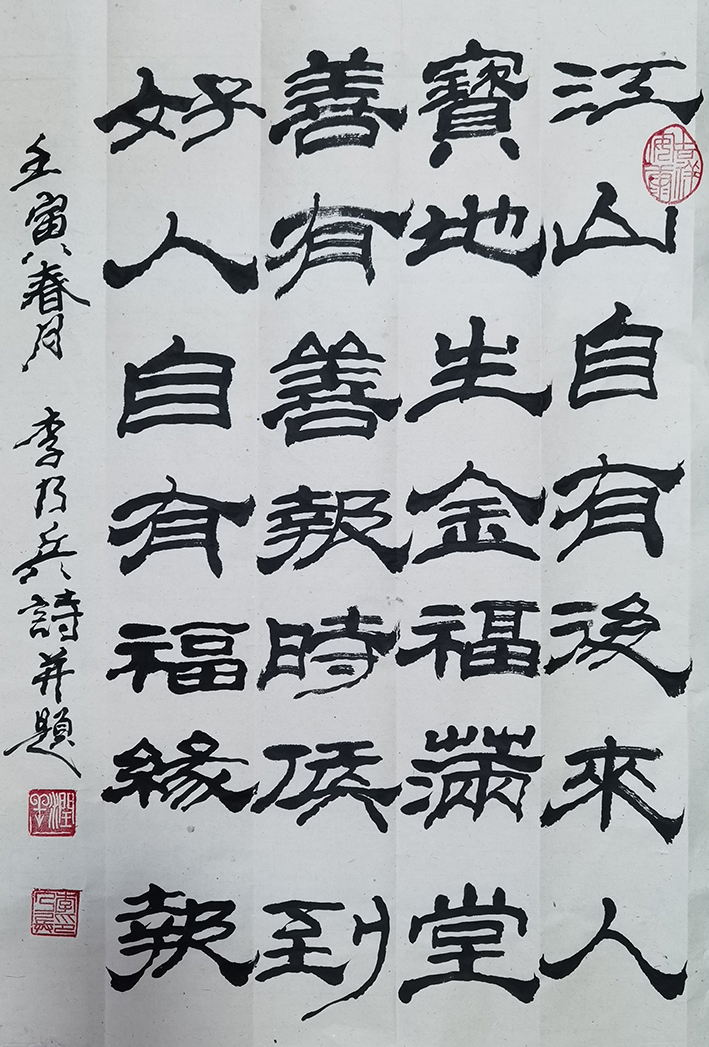 江山自有後來人
寶地生金福滿堂
善有善報時侯到
好人自有福緣報
壬寅八春月 李乃兵詩并題